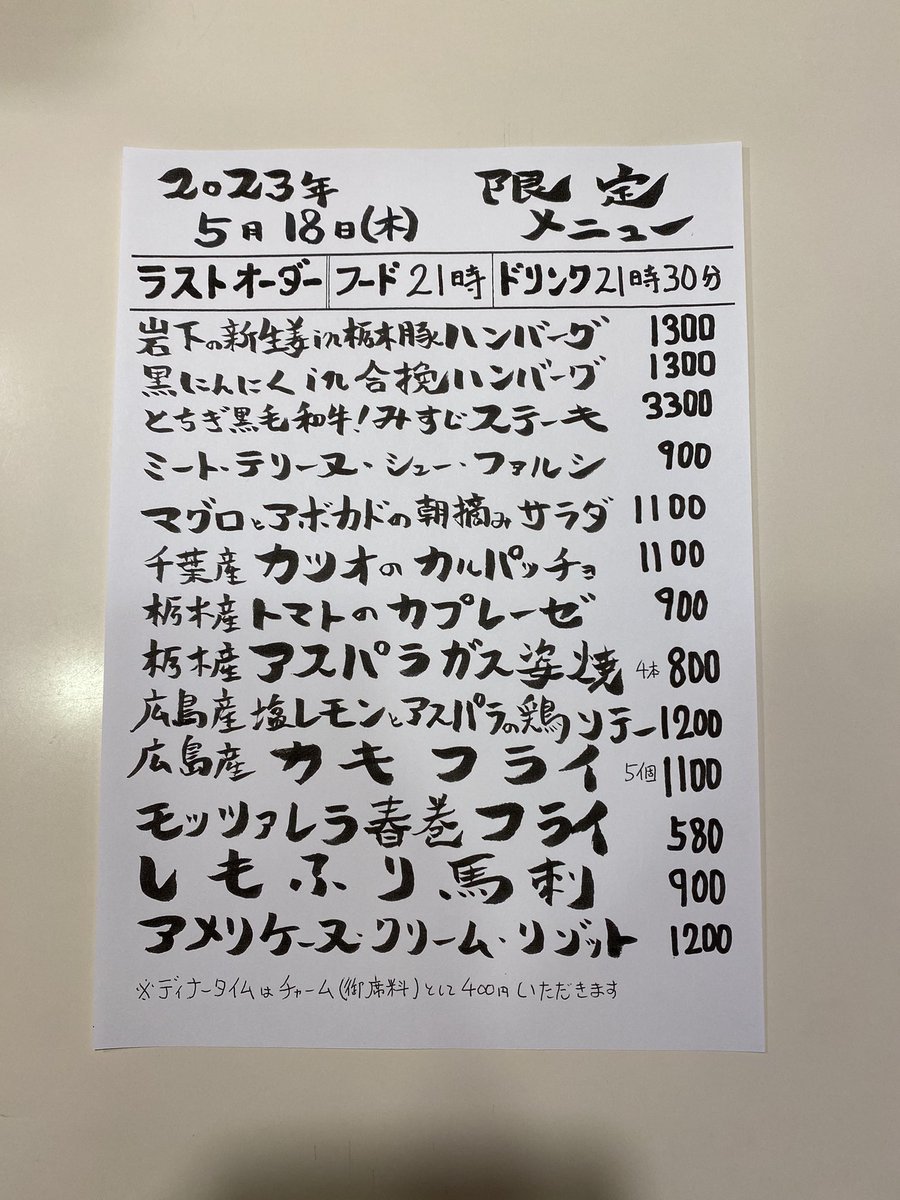 2023年 限定
5月18日(木) メニュー
ラストオーダー フード21時 ドリンク21時30分
岩下の新生姜in栃木豚ハンバーグ 1300
黒にんにくin合挽ハンバーグ 1300
とちぎ黒毛和牛!みすじステーキ 3300
ミート・テリーヌ・シュー・ファルシ 900
マグロとアボカドの朝摘みサラダ 1100
千葉産 カツオのカルパッチョ 1100
栃木産 トマトのカプレーゼ 900
栃木産 アスパラガス姿焼 4本 800
広島産 塩レモンとアスパラの鶏ソテー 1200
広島産 カキフライ 5個 1100
モッツァレラ春巻フライ 580
しもふり馬刺 900
アメリケーヌ・クリーム・リゾット 1200
※ディナータイムはチャーム(御席料)として400円いただきます